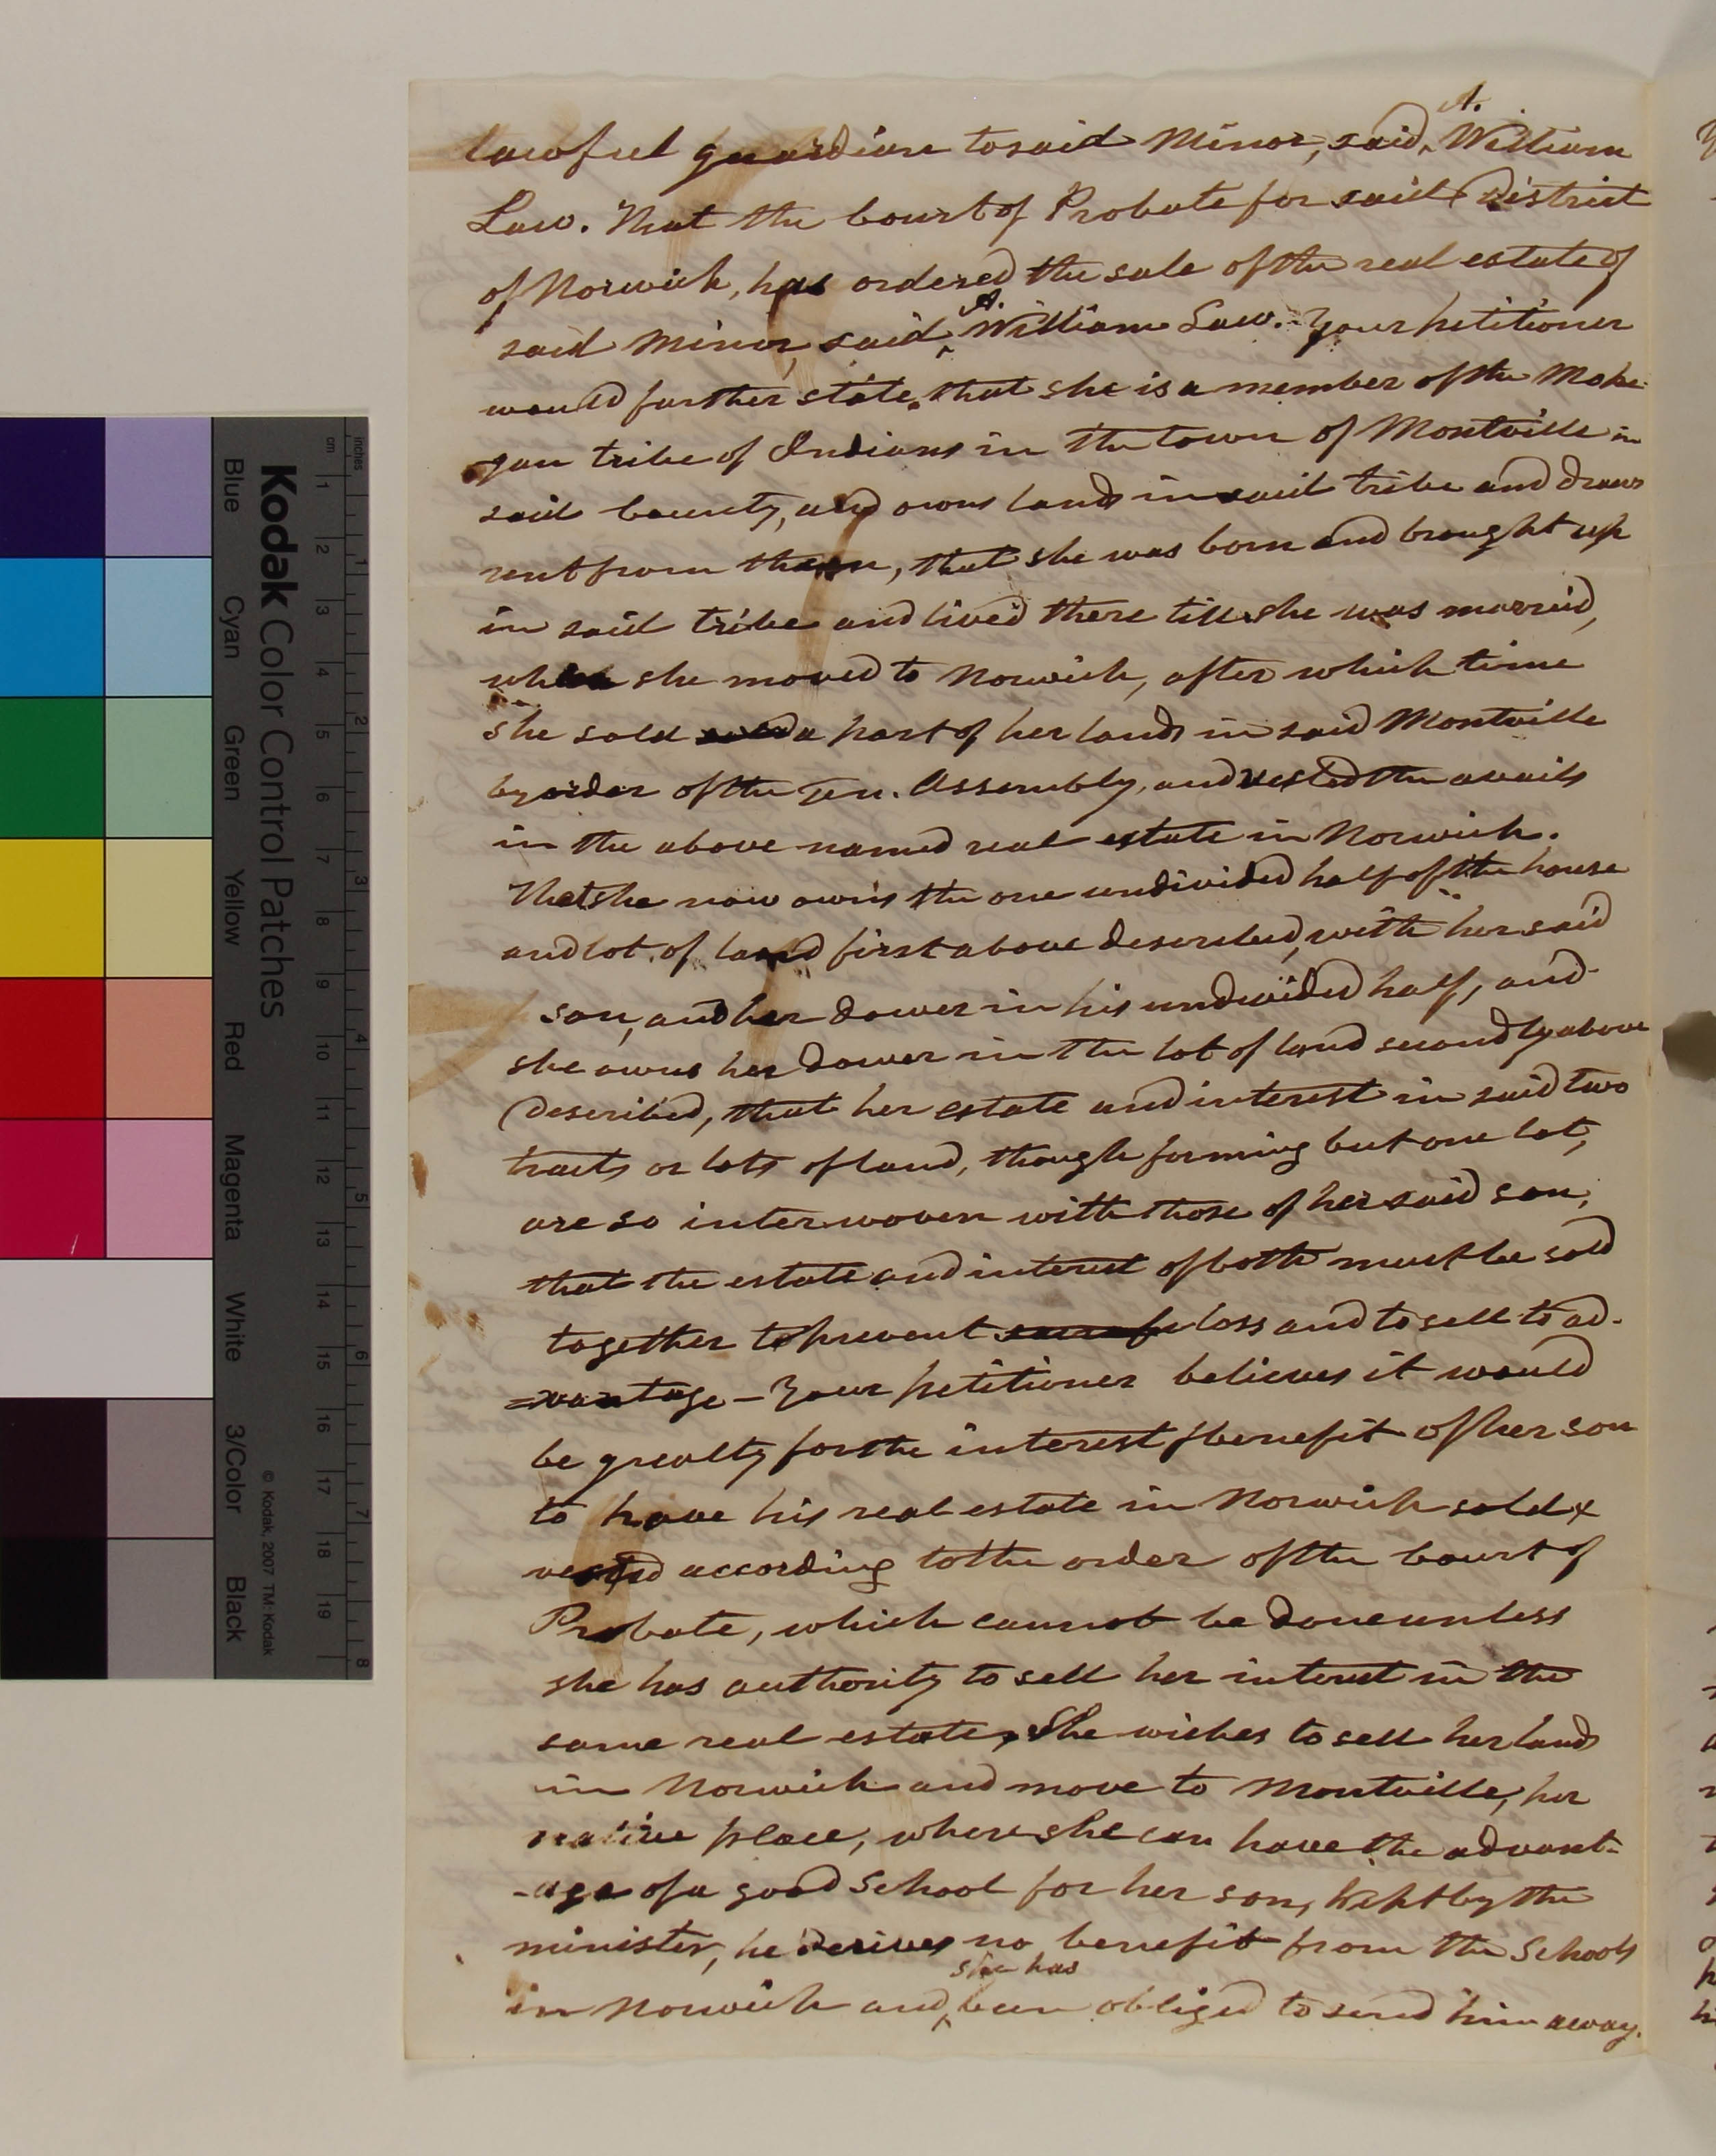 lawful guardian to said Minor, said A. William
Law. That the Court of Probate for said District
of Norwich, has ordered the sale of the real estate of
said Minor, said A. William Law. Your petitioner
would further state, that she is a member of the Mohe-
gan tribe of Indians in the town of Montville in
said County, and owns lands in said tribe and draws
rent from them, that she was born and brought up
in said tribe and lived there till she was married,
when she moved to Norwich, after which time
she sold a part of her lands in said Montville
by order of the Gen. Assembly, and vested the avails
in the above named real estate in Norwich.
That she now owns the one undivided half of the house
and lot of land first above described, with her said
son, and her dower in his undivided half, and
she owns her dower in the lot of land secondly above
described, that her estate and interest in said two
tracts or lots of land, though forming but one lot,
are so interwoven with those of her said son,
that the estate and interest of both must be sold
together to prevent loss and to sell to ad-
=vantage – Your petitioner believes it would
be greatly for the interest & benefit of her son
to have his real estate in Norwich sold &
vested according to the order of the Court of
Probate, which cannot be done unless
she has authority to sell her interest in the
same real estate, She wishes to sell her lands
in Norwich and move to Montville, her
native place, where she can have the advant-
-age of a good School for her son, kept by the
minister, he derives no benefit from the Schools
in Norwich and she has been obliged to send him away.
Kodak Color Control Patches
Blue Cyan Green Yellow Red Magenta White 3/Color Black
© Kodak, 2007 TM: Kodak
cm 1 2 3 4 5 6 7 8 9 10 11 12 13 14 15 16 17 18 19
inches 1 2 3 4 5 6 7 8